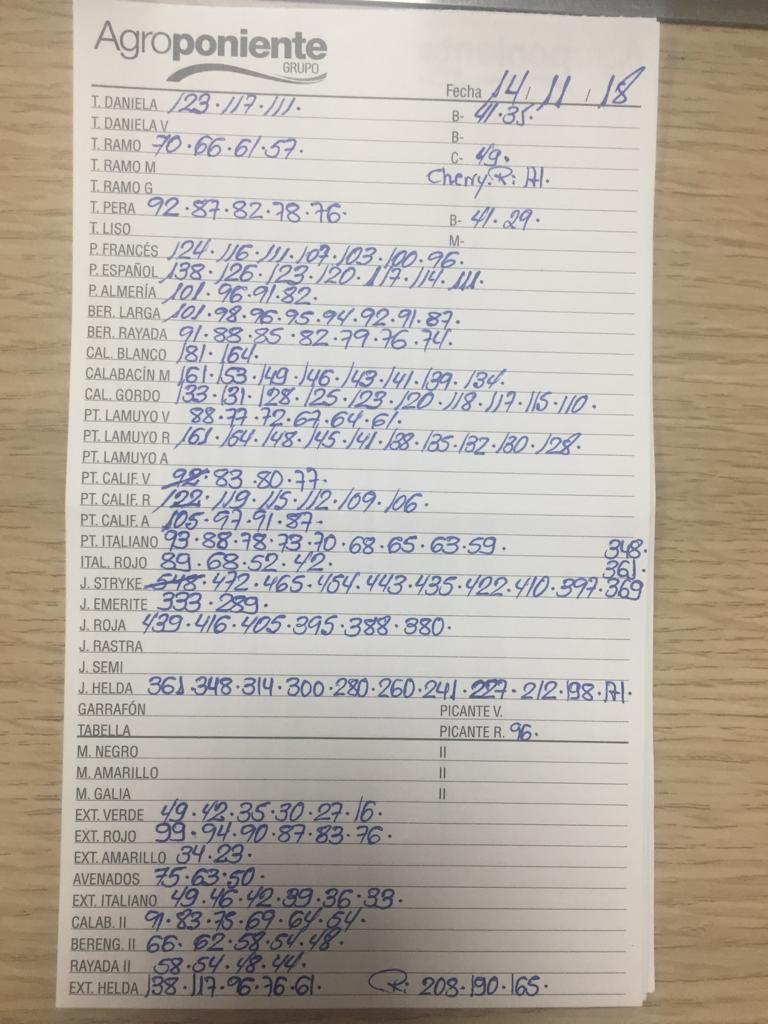 Agroponiente
GRUPO
Fecha 14 / 11 / 18
T. DANIELA 123·117·111· B- 41·35·
T. DANIELA V B-
T. RAMO 70·66·61·57· C- 49·
T. RAMO M Cherry. R:
T. RAMO G
T. PERA 92·87·82·78·76· B- 41·29·
T. LISO M-
P. FRANCÉS 124·116·111·107·103·100·96·
P. ESPAÑOL 138·126·123·120·117·114·111·
P. ALMERÍA 101·96·91·82·
BER. LARGA 101·98·96·95·94·92·91·87·
BER. RAYADA 91·88·85·82·79·76·74·
CAL. BLANCO 181·164·
CALABACÍN M 161·153·149·146·143·141·139·134·
CAL. GORDO 133·131·128·125·123·120·118·117·115·110·
PT. LAMUYO V 88·77·72·67·64·61·
PT. LAMUYO R 161·164·148·145·141·138·135·132·130·128·
PT. LAMUYO A
PT. CALIF. V 92·83·80·77·
PT. CALIF. R 122·119·115·112·109·106·
PT. CALIF. A 105·97·91·87·
PT. ITALIANO 93·88·78·73·70·68·65·63·59· 348·
ITAL. ROJO 89·68·52·42· 361·
J. STRYKE 548·472·465·454·443·435·422·410·397·369
J. EMERITE 333·289·
J. ROJA 439·416·405·395·388·380·
J. RASTRA
J. SEMI
J. HELDA 361·348·314·300·280·260·241·227·212·198·171·
GARRAFÓN PICANTE V.
TABELLA PICANTE R. 96·
M. NEGRO II
M. AMARILLO II
M. GALIA II
EXT. VERDE 49·42·35·30·27·16·
EXT. ROJO 99·94·90·87·83·76·
EXT. AMARILLO 34·23·
AVENADOS 75·63·50·
EXT. ITALIANO 49·46·42·39·36·33·
CALAB. II 91·83·75·69·64·54·
BERENG. II 66·62·58·54·48·
RAYADA II 58·54·48·44·
EXT. HELDA 138·117·96·76·61· R: 208·190·165·